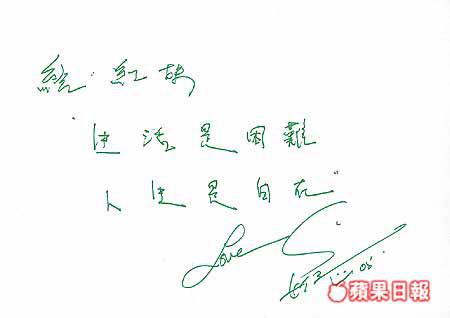 紅
生活是困難
人生是自在"
Love
05.
蘋果日報